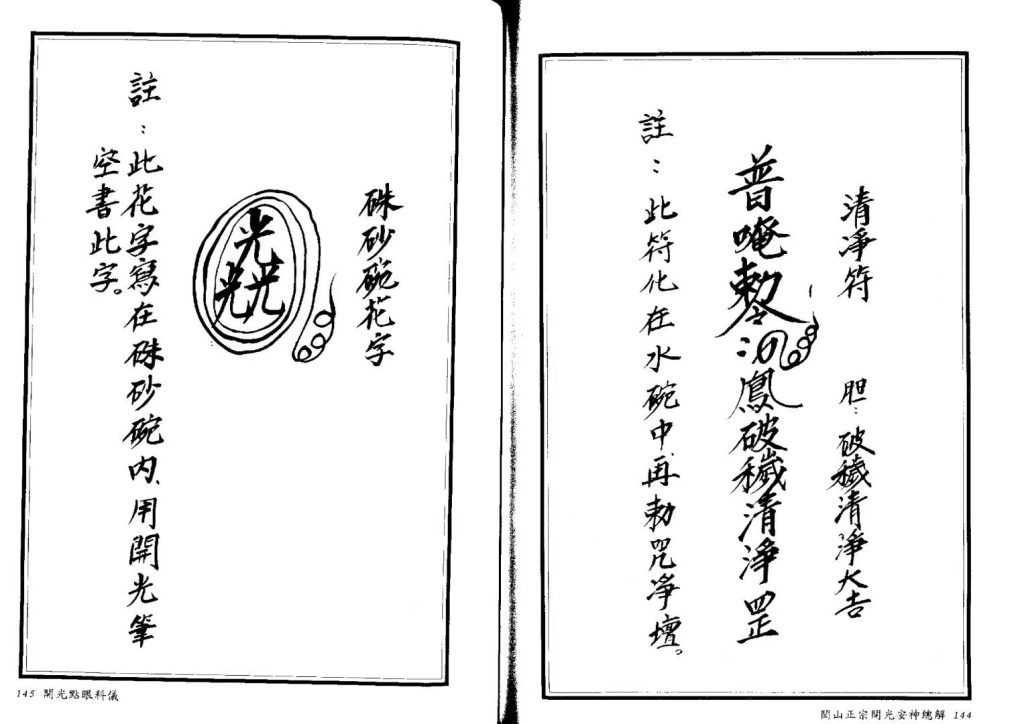 清淨符　胆：破穢清淨大吉
普唵敕令 鳳破穢清淨罡
註：此符化在水碗中再勅咒淨壇。
閭山正宗開光安神總解 144
硃砂碗花字
光光光
註：此花字寫在硃砂碗內、用開光筆
空書此字。
145 開光點眼科儀